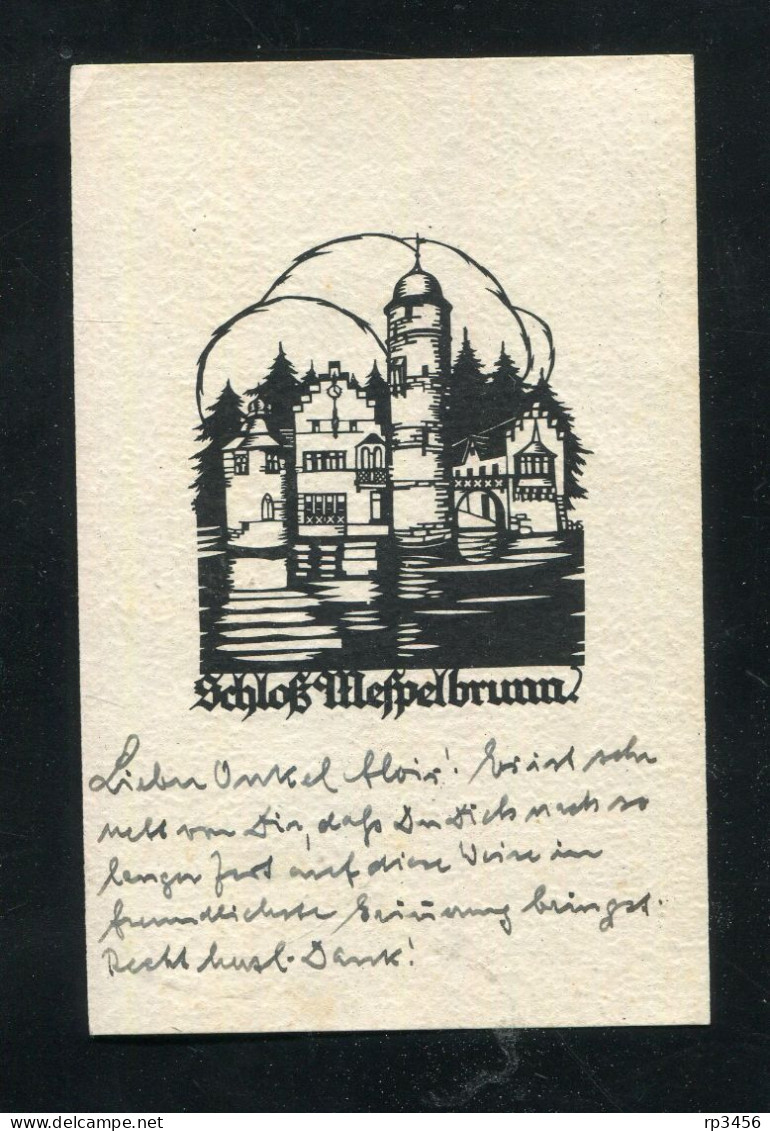 Schloß Mespelbrunn
Lieber Onkel Alois! Es ist sehr
nett von Dir, daß Du Dich nach so
langer Zeit auf diese Weise in
freundlichste Erinnerung bringst.
Recht herzl. Dank!
Delcampe.net
rp3456